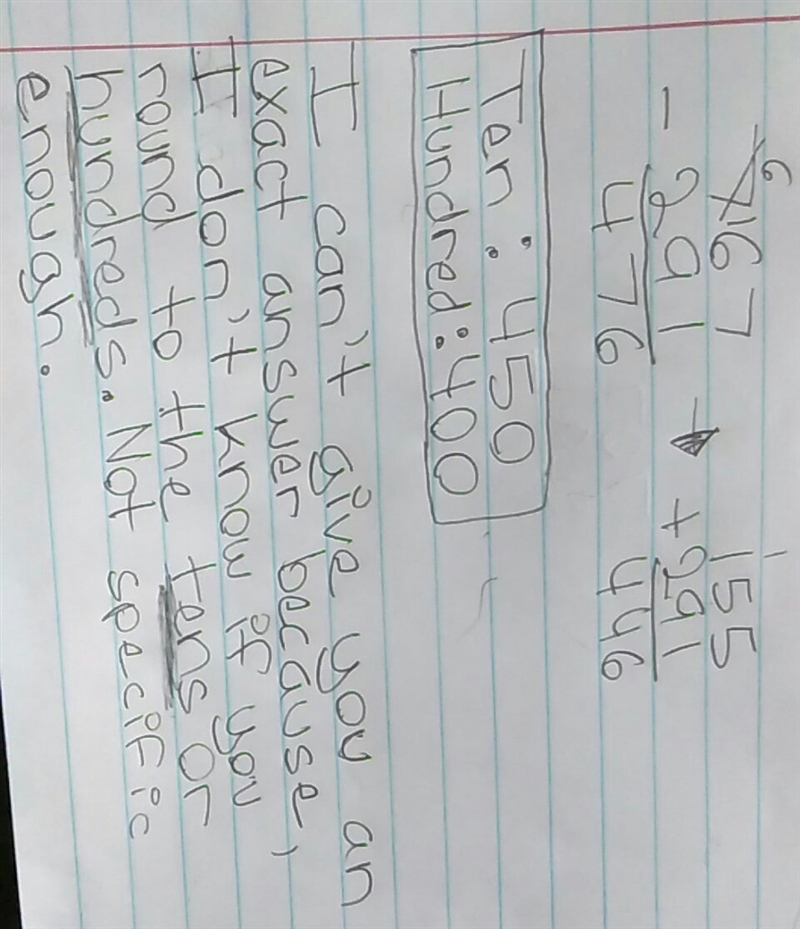 6 1
7167 155
- 291 → + 291
476 446
Ten: 450
Hundred: 400
I can't give you an
exact answer because,
I don't know if you
round to the tens or
hundreds. Not specific
enough.